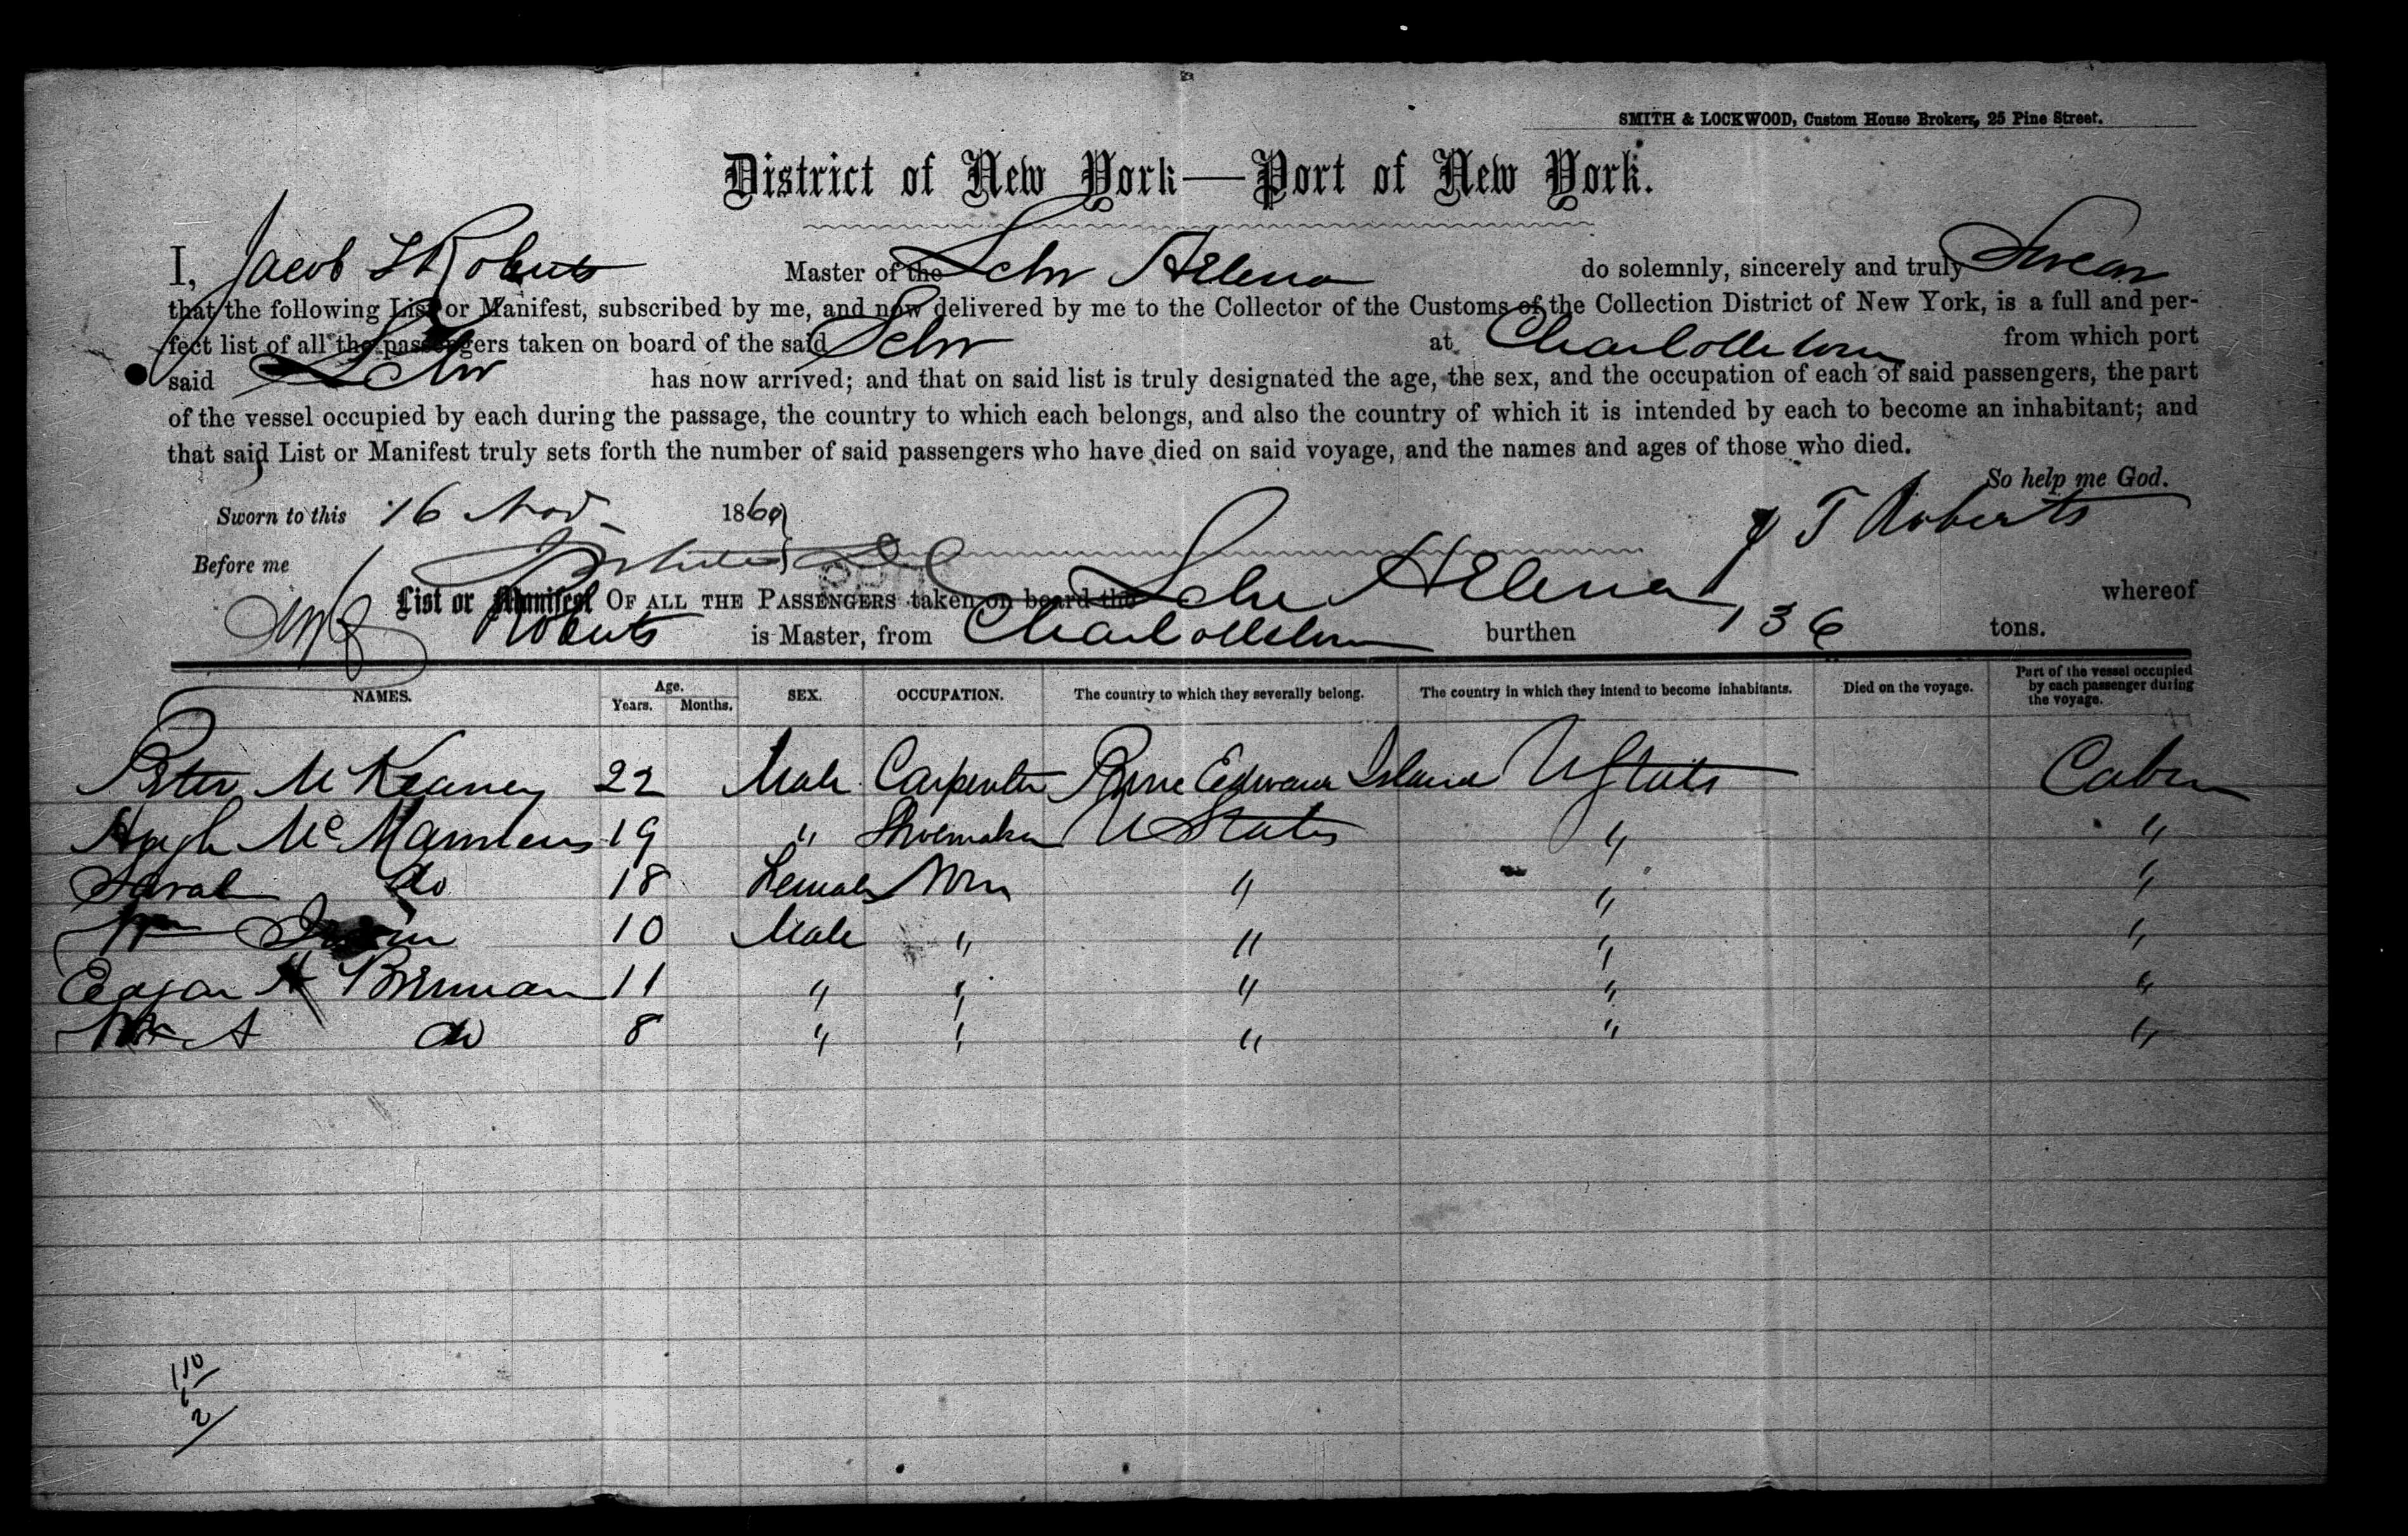 SMITH & LOCKWOOD, Custom House Brokers, 25 Pine Street.
District of New York—Port of New York.
I, Jacob T Roberts Master of the Schr Helena do solemnly, sincerely and truly Swear
that the following List or Manifest, subscribed by me, and now delivered by me to the Collector of the Customs of the Collection District of New York, is a full and per-
fect list of all the passengers taken on board of the said Schr at Charlottetown from which port
said Schr has now arrived; and that on said list is truly designated the age, the sex, and the occupation of each of said passengers, the part
of the vessel occupied by each during the passage, the country to which each belongs, and also the country of which it is intended by each to become an inhabitant; and
that said List or Manifest truly sets forth the number of said passengers who have died on said voyage, and the names and ages of those who died.
So help me God.
Sworn to this 16 Nov. 1860 J T Roberts
Before me
List or Manifest OF ALL THE PASSENGERS taken on board the Schr Helena whereof
Roberts is Master, from Charlottetown burthen 136 tons.
NAMES. Age. Years. Months. SEX. OCCUPATION. The country to which they severally belong. The country in which they intend to become inhabitants. Died on the voyage. Part of the vessel occupied by each passenger during the voyage.
Peter McKenney 22 Male Carpenter Prine Edward Island U States Cabin
Hugh Mc Manniens 19 " Shoemaker U States " "
Sarah do 18 Female Non " " "
Wm 10 Male " " " "
Edgar H Brennan 11 " " " " "
Wm A do 8 " " " " "
110
6
2